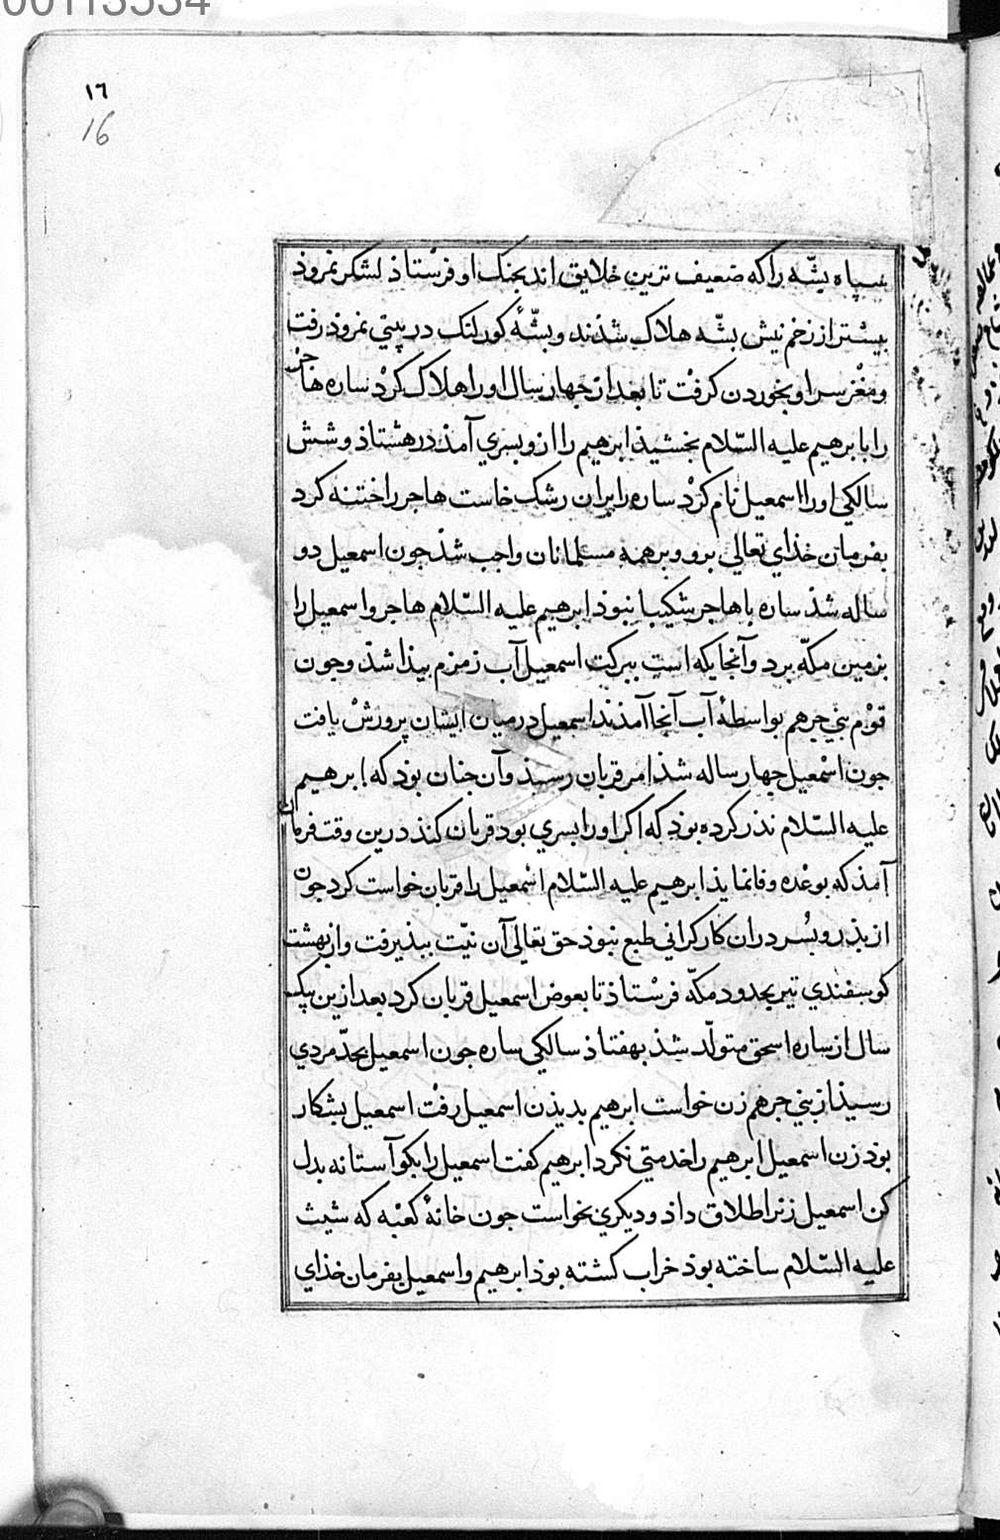 00113534
١٦
16
سپاه پشّه را که ضعیف ترین خلایق اند بجنک او فرستاذ لشکر نمروذ
بیشتر از زخم نیش بشّه هلاک شذند و بشّهٔ کور لنک در بینی نمروذ رفت
و مغز سر او بخوردن کرفت تا بعد از جهار سال او را هلاک کرد ساره هاجر
را بابرهیم علیه السّلام بخشیذ ابرهیم را ازو بسری آمذ در هشتاذ و شش
سالکی او را اسمعیل نام کرد ساره را بران رشک خاست هاجر را ختنه کرد
بفرمان خذای تعالی برو و بر همه مسلمانان واجب شذ جون اسمعیل دو
ساله شذ ساره با هاجر شکیبا نبوذ ابرهیم علیه السّلام هاجر و اسمعیل را
بزمین مکّه برد و آنجایکه است ببرکت اسمعیل آب زمزم بیذا شذ و جون
قوم بنی جرهم بواسطهٔ آب آنجا آمذند اسمعیل در میان ایشان پرورش یافت
جون اسمعیل جهار ساله شذ امر قربان رسیذ و آن جنان بوذ که ابرهیم
علیه السّلام نذر کرده بوذ که اکر او را بسری بود قربان کنذ درین وقت فرمان
آمذ که بوعده وفا نمایذ ابرهیم علیه السّلام اسمعیل را قربان خواست کرد جون
از بذر و بسر در ان کار کرانی طبع نبوذ حق تعالی آن نیّت ببذیرفت و از بهشت
کوسفندی بتیر بحدود مکّه فرستاذ تا بعوض اسمعیل قربان کرد بعد ازین بیک
سال از ساره اسحق متولّد شذ بهفتاذ سالکی ساره جون اسمعیل بحدّ مردی
رسیذ از بنی جرهم زن خواست ابرهیم بدیذن اسمعیل رفت اسمعیل بشکار
بوذ زن اسمعیل ابرهیم را خدمتی نکرد ابرهیم کفت اسمعیل را بکو آستانه بدل
کن اسمعیل زنرا طلاق داذ و دیکری بخواست جون خانهٔ کعبه که شیث
علیه السّلام ساخته بوذ خراب کشته بوذ ابرهیم و اسمعیل بفرمان خذای